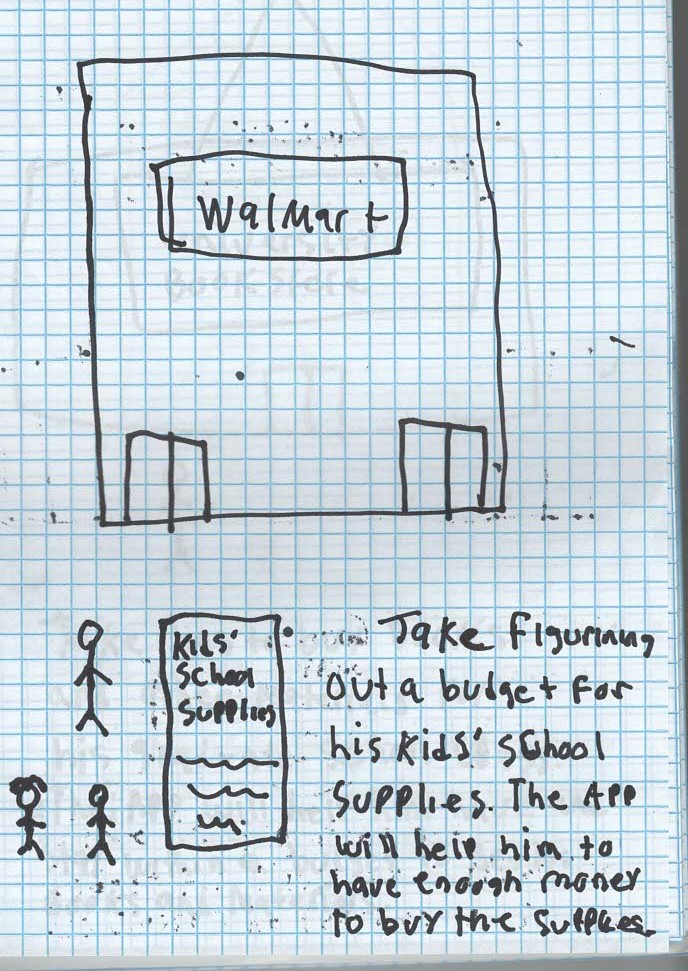 WalMart
Kids'
School
Supplies
Jake Figurinng
out a budget for
his Kids' School
Supplies. The App
will help him to
have enough money
to buy the Supplies.